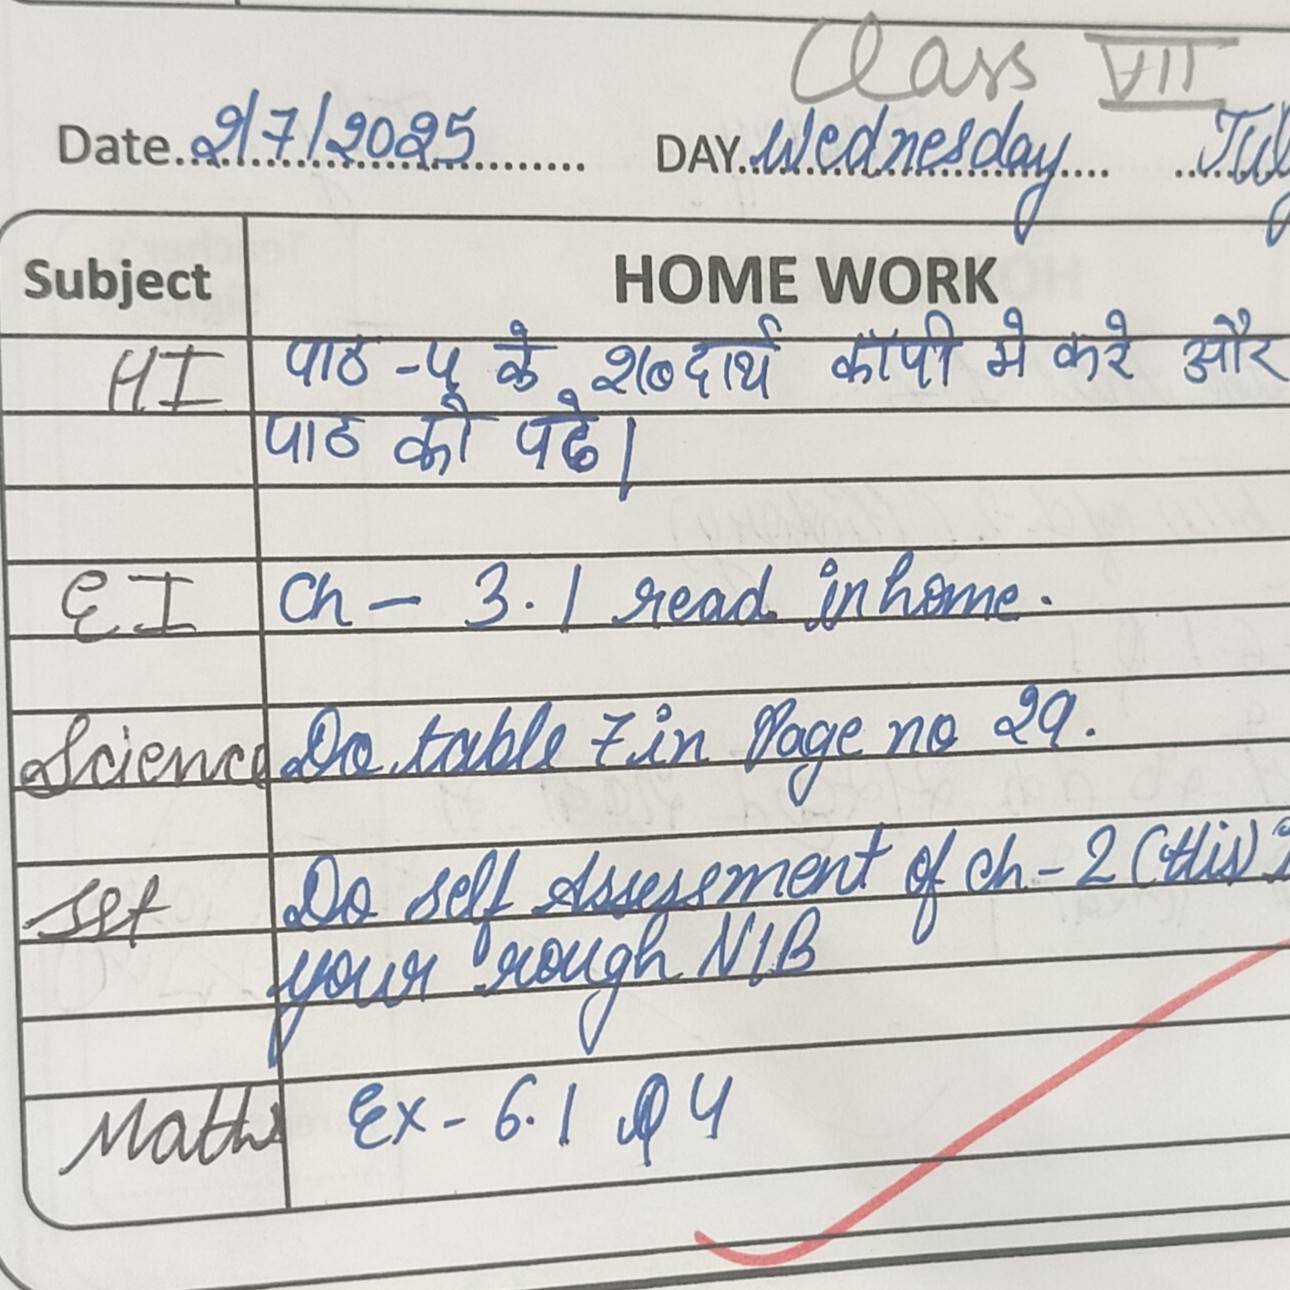 Class VII
Date. 2/7/2025 DAY. Wednesday July
Subject HOME WORK
HI पाठ -५ के शब्दार्थ कॉपी मे करे और
पाठ को पढे।
EI Ch - 3.1 read in home.
Science Do table 7 in Page no 29.
Do self Assessment of ch - 2 (His)
your rough N/B
Maths Ex - 6.1 Q 4